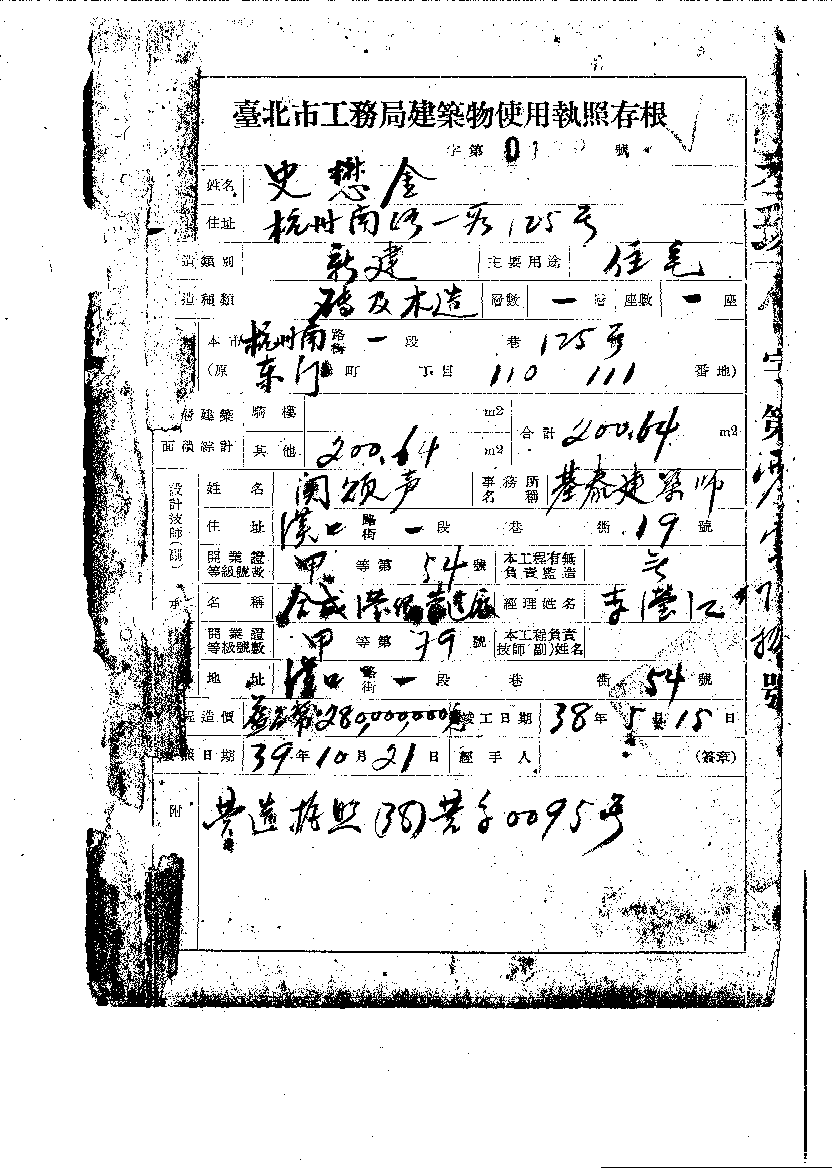 臺北市工務局建築物使用執照存根
字第 0 號
姓名 史懋金
住址 杭州南路一段125号
造類別 新建 主要用途 住宅
造種類 磚及木造 層數 一 層 座數 一 座
本市 杭州南 路街 一 段 巷 125号
(原 东门 町 丁目 110 111 番地)
層建築 騎樓 m2 合計 200.64 m2
面積綜計 其他 200.64 m2
設計技師(副) 姓名 関頌声 事務所名稱 基泰建築師
住址 漢口 路街 一 段 巷 衖 19 號
開業證等級號數 甲 等第 54 號 本工程有無負責監造 无
承 名稱 合成 經理姓名 李瀅江
開業證等級號數 甲 等第 79 號 本工程負責技師(副)姓名
地址 漢口 路街 一 段 巷 衖 54 號
造價 280,000,000元 竣工日期 38年5月15日
日期 39年10月21日 經手人 (簽章)
附 营造执照(38)营字0095号